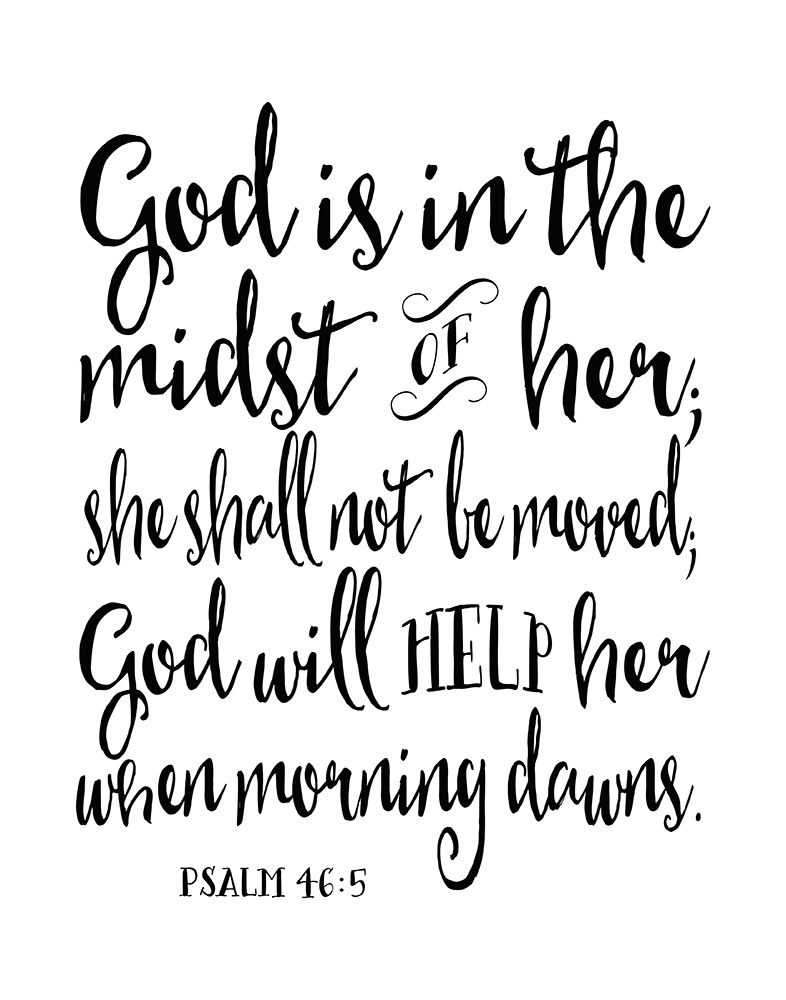 God is in the
midst OF her;
she shall not be moved;
God will HELP her
when morning dawns.
PSALM 46:5